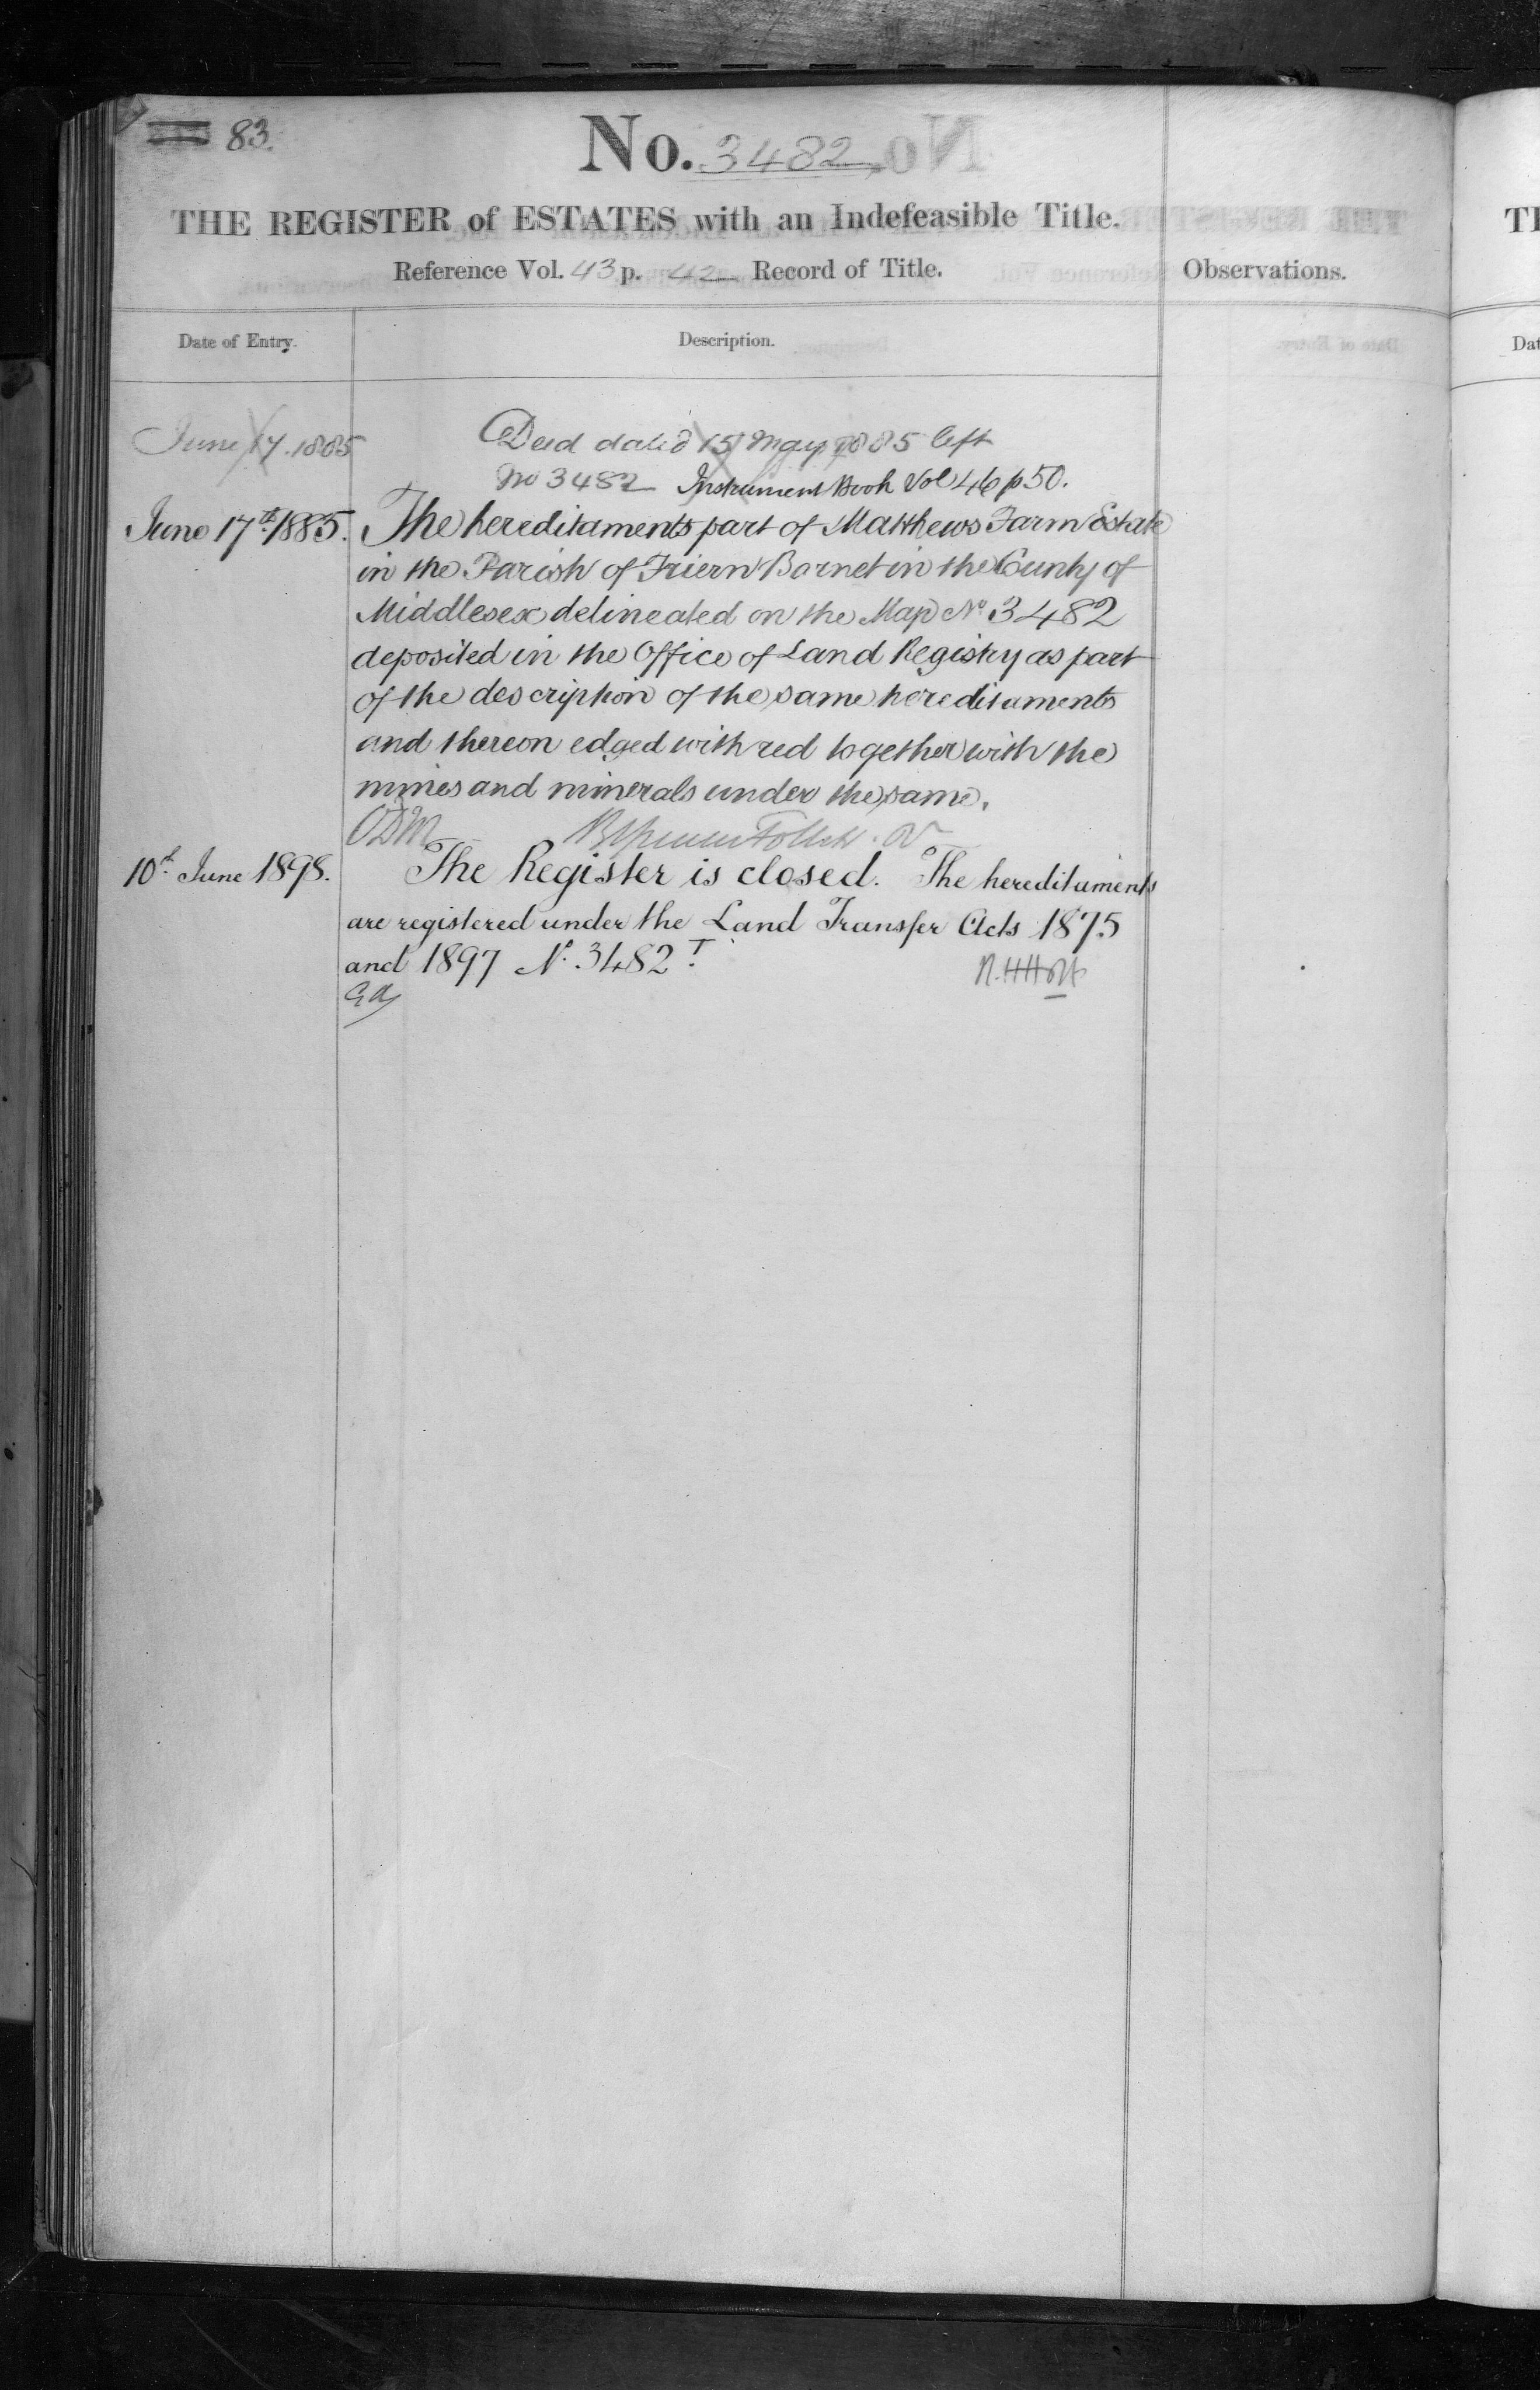 83.
No. 3482
THE REGISTER of ESTATES with an Indefeasible Title.
Reference Vol. 43 p. 42 Record of Title.
Observations.
Date of Entry.
Description.
June 17. 1885
Deed dated 15 May 1885 left
No 3482 Instrument Book Vol 46 p 50.
June 17th 1885. The hereditaments part of Matthews Farm Estate
in the Parish of Friern Barnet in the County of
Middlesex delineated on the Map No 3482
deposited in the Office of Land Registry as part
of the description of the same hereditaments
and thereon edged with red together with the
mines and minerals under the same.
10th June 1898. The Register is closed. The hereditaments
are registered under the Land Transfer Acts 1875
and 1897 No. 3482 T.
R. H Holt